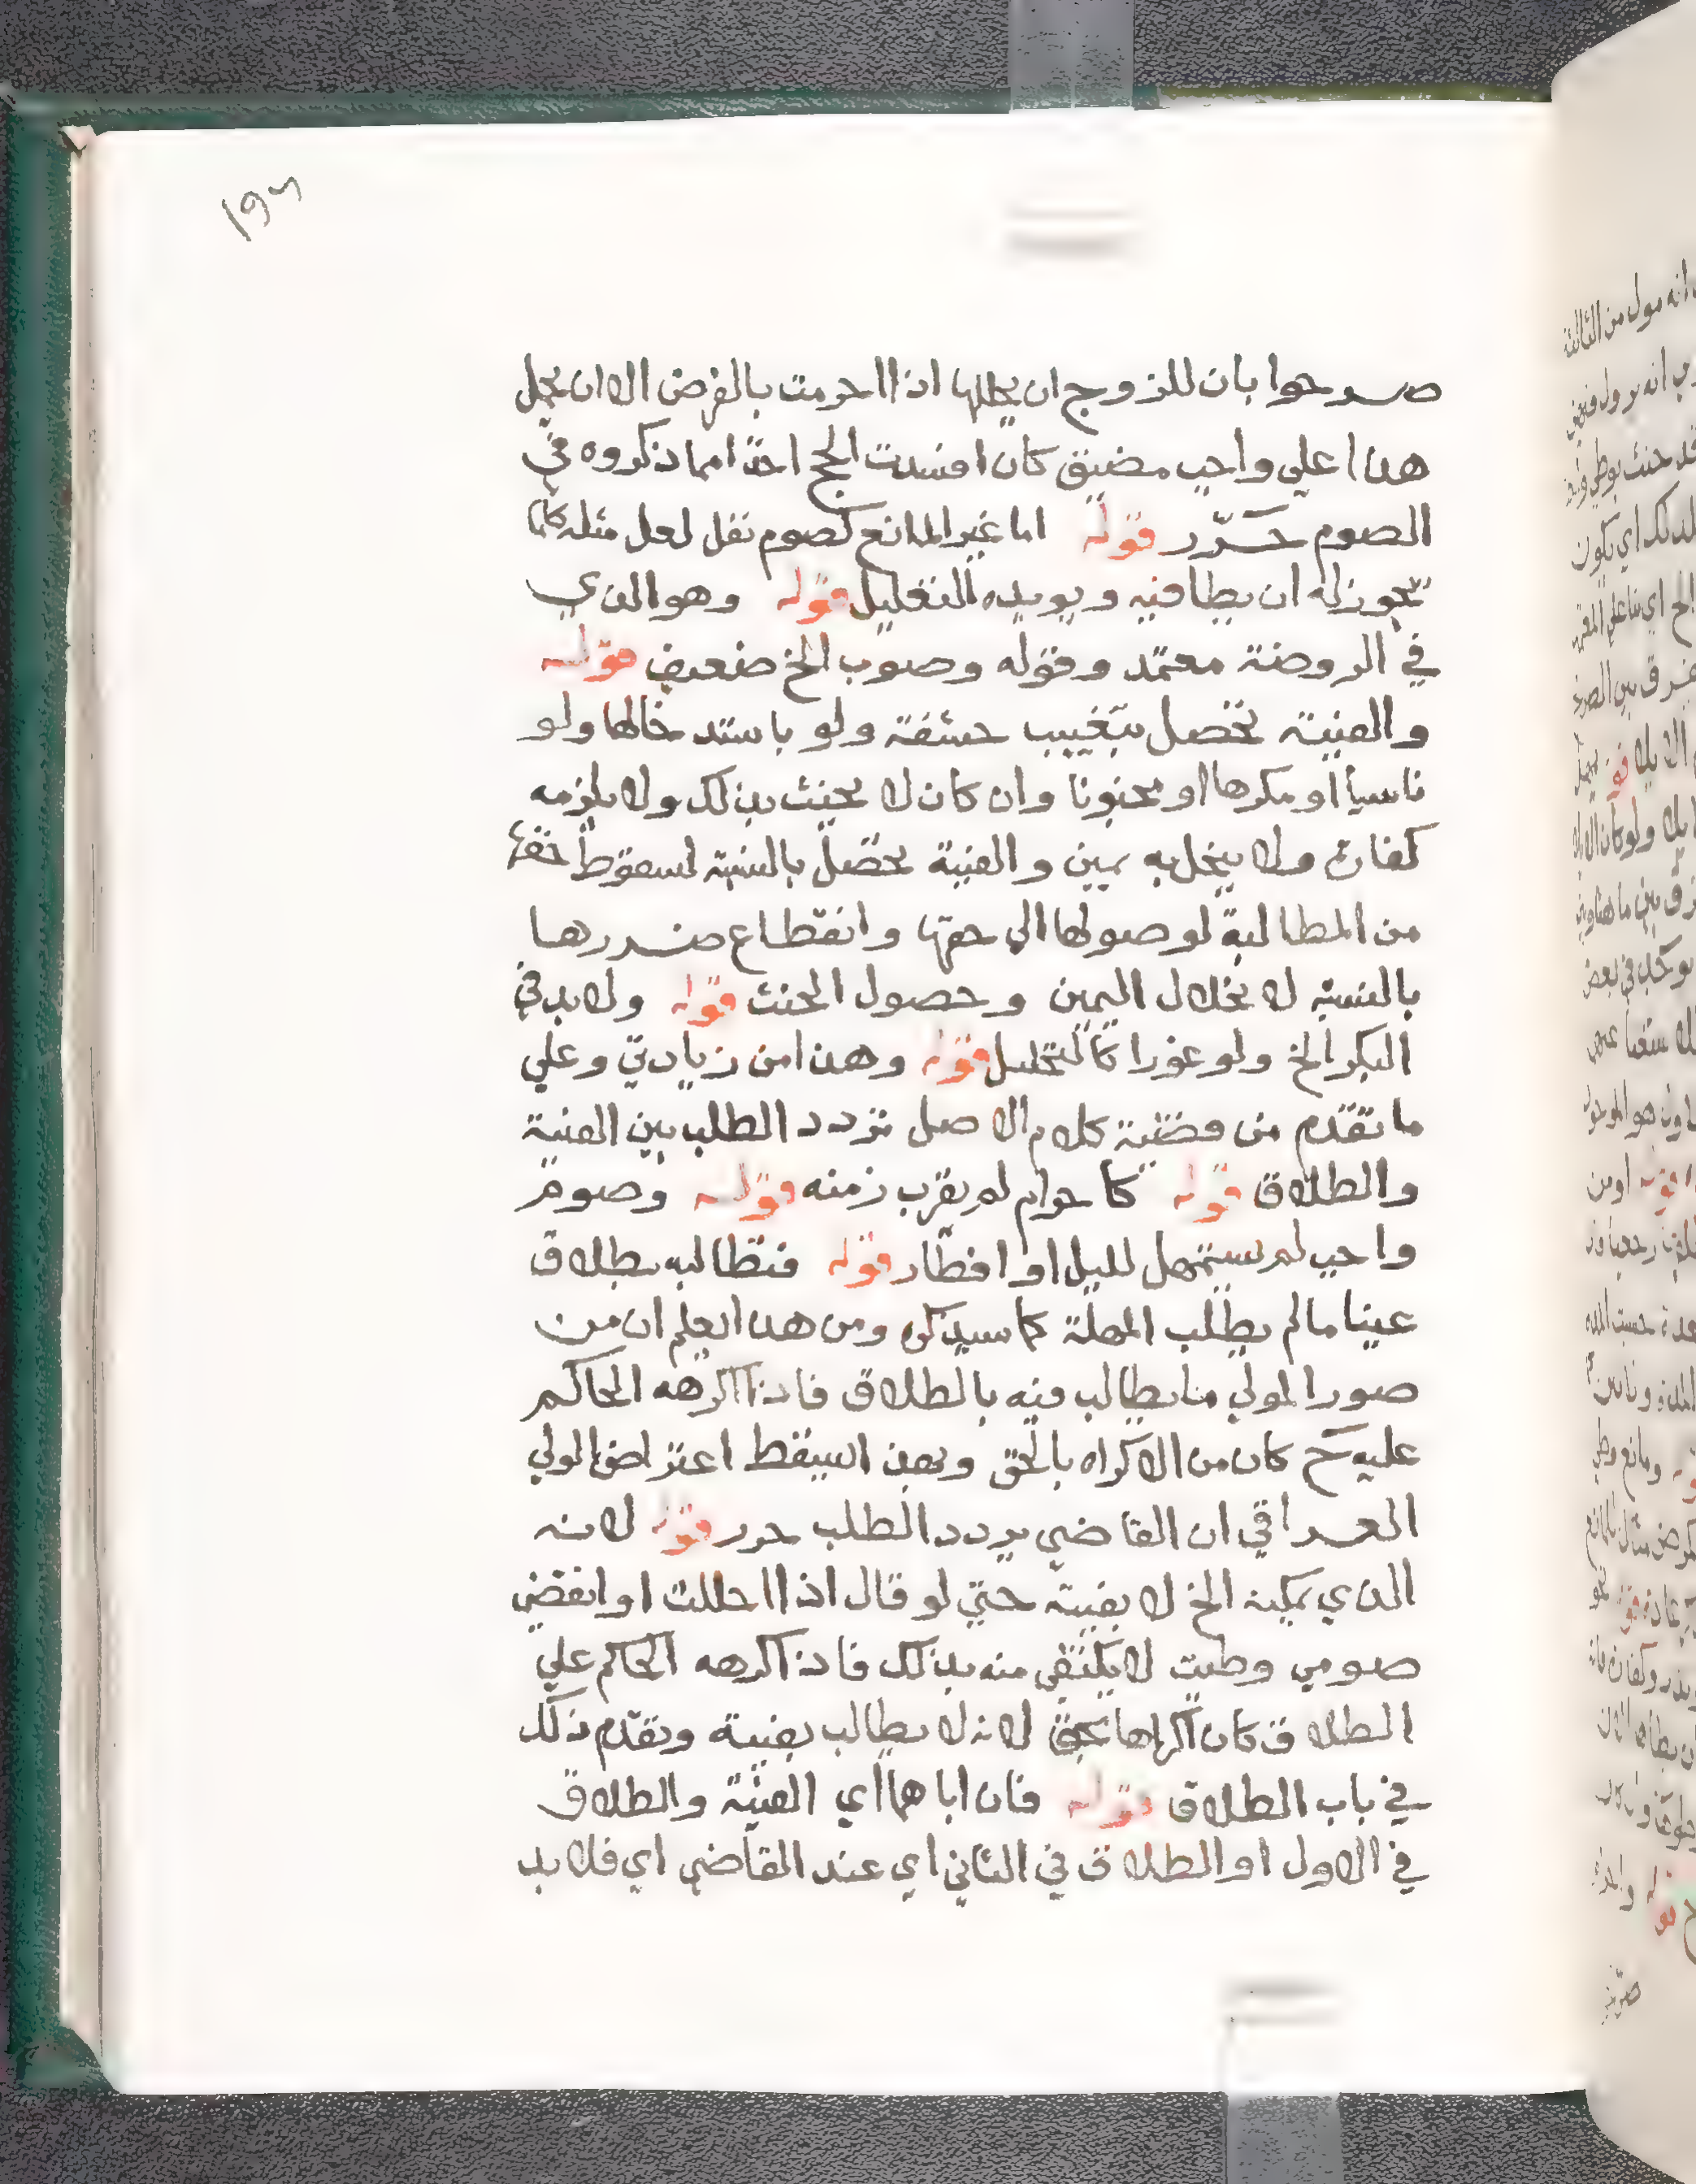 ١٩٣
صرحوا بان للزوج ان يحللها اذا احرمت بالفرض الا ان يحمل
هذا علي واجب مضيق كان افسدت الحج اخذا مما ذكروه في
الصوم حَرّر قوله اما غير المانع كصوم نفل لعل مثله كما
يجوز له ان يطا فيه ويويده التعليل قوله وهو الذي
في الروضة معتمد وقوله وصوب الخ ضعيف قوله
والفيئة تحصل بتغييب حشفة ولو باستدخالها ولو
ناسيا او مكرها او مجنونا وان كان لا يحنث بذلك ولا يلزمه
كفارة ولا ينحل به يمين والفيئة تحصل بالنسبة لسقوط حقها
من المطالبة لوصولها الي حقها وانقطاع ضررها
بالنسبة لانحلال اليمين وحصول الحنث قوله ولا بد في
البكر الخ ولو غورا كالتحليل قوله وهذا من زيادتي وعلي
ما تقدم من قضية كلام الاصل تردد الطلب بين الفيئة
والطلاق قوله كاحرام لم يقرب زمنه قوله وصوم
واجب لم يستمهل لليل او افطار قوله فتطالبه بطلاق
عينا مالم يطلب المهلة كما سيذكره ومن هذا يعلم ان من
صور المولي من يطالب فيه بالطلاق فاذا اكرهه الحاكم
عليه ح كان من الاكراه بالحق وبهذا يسقط اعتراض الولي
العراقي ان القاضي يردد الطلب حرر قوله لانه
الذي يمكنه الخ لا بفيئة حتي لو قال اذا احللت او انقضي
صومي وطيت لا يكتفي منه بذلك فاذا اكرهه الحاكم علي
الطلاق كان اكراها بحق لانه لا يطالب بفيئة وتقدم ذلك
في باب الطلاق قوله فان اباهما اي الفيئة والطلاق
في الاول او الطلاق في الثاني اي عند القاضي اي فلا بد